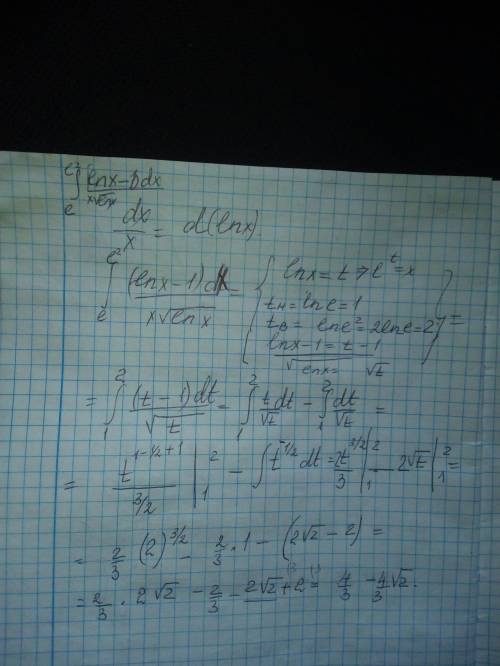 ∫_e^{e²} (ln x − 1) dx / (x√ln x)
dx/x = d(ln x)
∫_e^{e²} (ln x − 1) dx / (x√ln x) = { ln x = t ⇒ e^t = x
t_н = ln e = 1
t_в = ln e² = 2 ln e = 2
(ln x − 1)/√ln x = (t − 1)/√t } =
= ∫_1^2 (t − 1) dt / √t = ∫_1^2 t/√t dt − ∫_1^2 dt/√t =
= t^{1−1/2+1} / (3/2) |_1^2 − ∫ t^{−1/2} dt = 2t^{3/2}/3 |_1^2 − 2√t |_1^2 =
= 2/3 (2)^{3/2} − 2/3 · 1 − (2√2 − 2) =
= 2/3 · 2√2 − 2/3 − 2√2 + 2 = 4/3 − 4/3 √2.